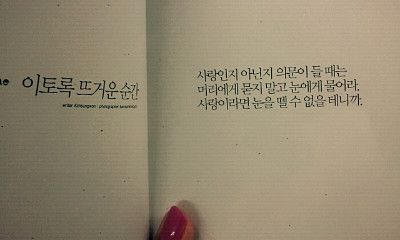 이토록 뜨거운 순간
사랑인지 아닌지 의문이 들 때는
머리에게 묻지 말고 눈에게 물어라.
사랑이라면 눈을 뗄 수 없을 테니까.